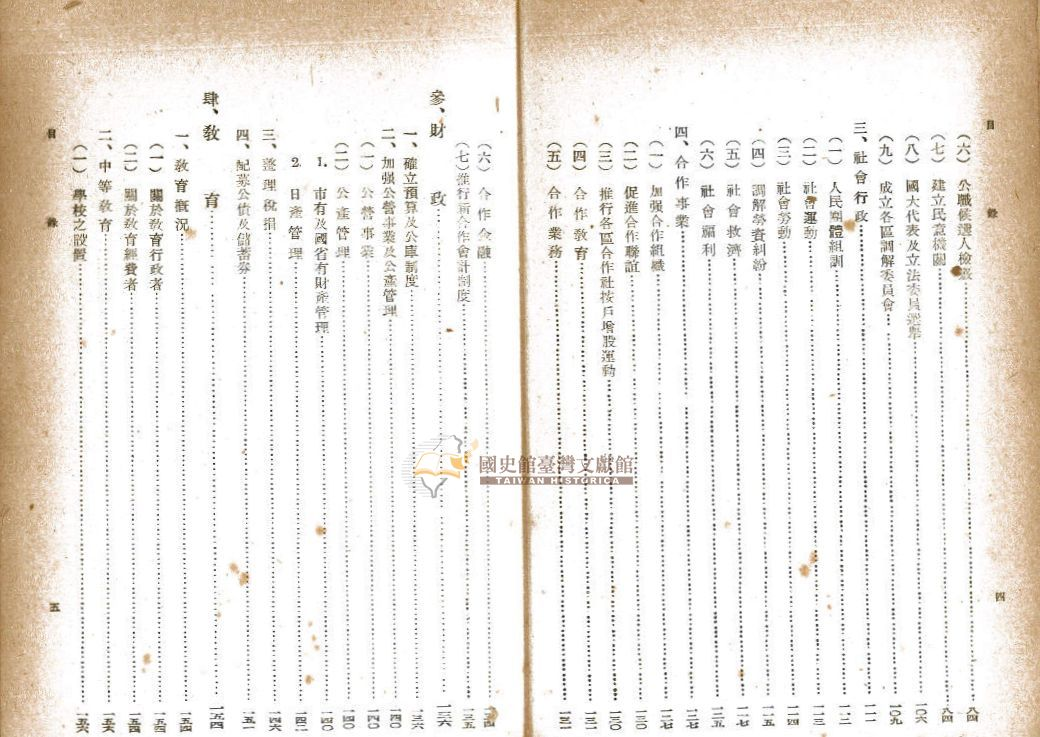 目錄
四
(六)公職候選人檢覈……八四
(七)建立民意機關……八四
(八)國大代表及立法委員選舉……一〇六
(九)成立各區調解委員會……一〇九
三、社會行政……一一一
(一)人民團體組訓……一一二
(二)社會運動……一一三
(三)社會勞動……一一四
(四)調解勞資糾紛……一一五
(五)社會救濟……一一七
(六)社會福利……一二五
四、合作事業……一二七
(一)加强合作組織……一二七
(二)促進合作聯誼……一三〇
(三)推行各區合作社按戶增股運動……一三〇
(四)合作敎育……一三一
(五)合作業務……一三一
(六)合作金融
(七)推行新合作會計制度……一三五
參、財政……一三六
一、確立預算及公庫制度……一三六
二、加强公營事業及公產管理……一四〇
(一)公營事業……一四〇
(二)公產管理……一四〇
1.市有及國省有財產管理……一四〇
2.日產管理……一四二
三、整理稅捐……一四六
四、配募公債及儲蓄券……一五一
肆、敎育……一五四
一、敎育概況……一五四
(一)關於敎育行政者……一五四
(二)關於敎育經費者……一五四
二、中等敎育……一五六
(一)學校之設置……一五六
目錄
五
國史館臺灣文獻館
TAIWAN HISTORICA